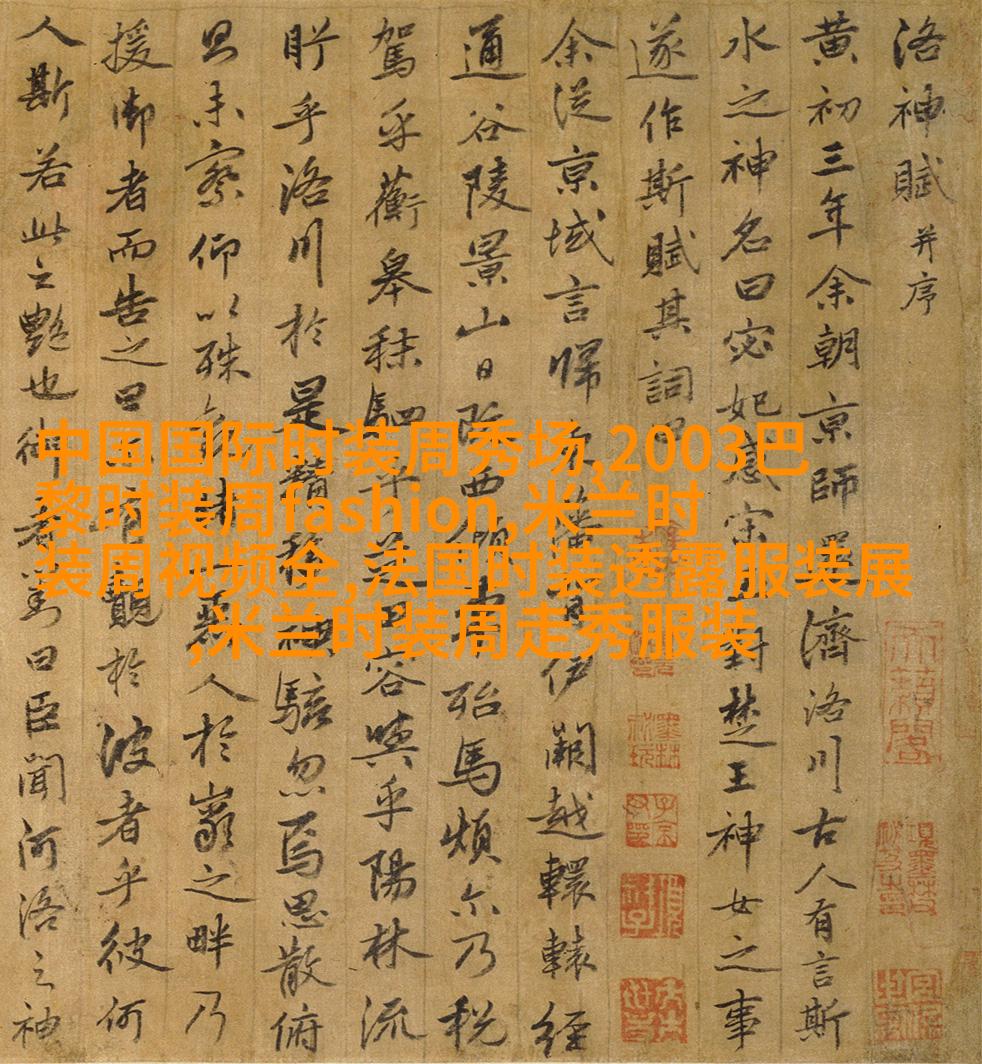 洛神賦并序
黄初三年余朝京師濟洛川古人有言斯
水之神名曰宓妃感宋對楚王神女之事
遂作斯賦其詞曰
余從京域言歸伊闕越轘轅經
通谷陵景山日既西傾殆馬煩尒乃税
駕乎蘅皋秣駟乎芝田容與乎陽林流
眄乎洛川於是精移神駭忽焉思散俯
則未察仰以殊麗人於巖之畔乃
援御者而告之曰有覿於彼者乎彼何
人斯若此之艷也御者對曰臣聞河洛之神
中国国际时装周秀场,2003巴
黎时装周fashion,米兰时
装周视频全,法国时装透露服装展
,米兰时装周走秀服装